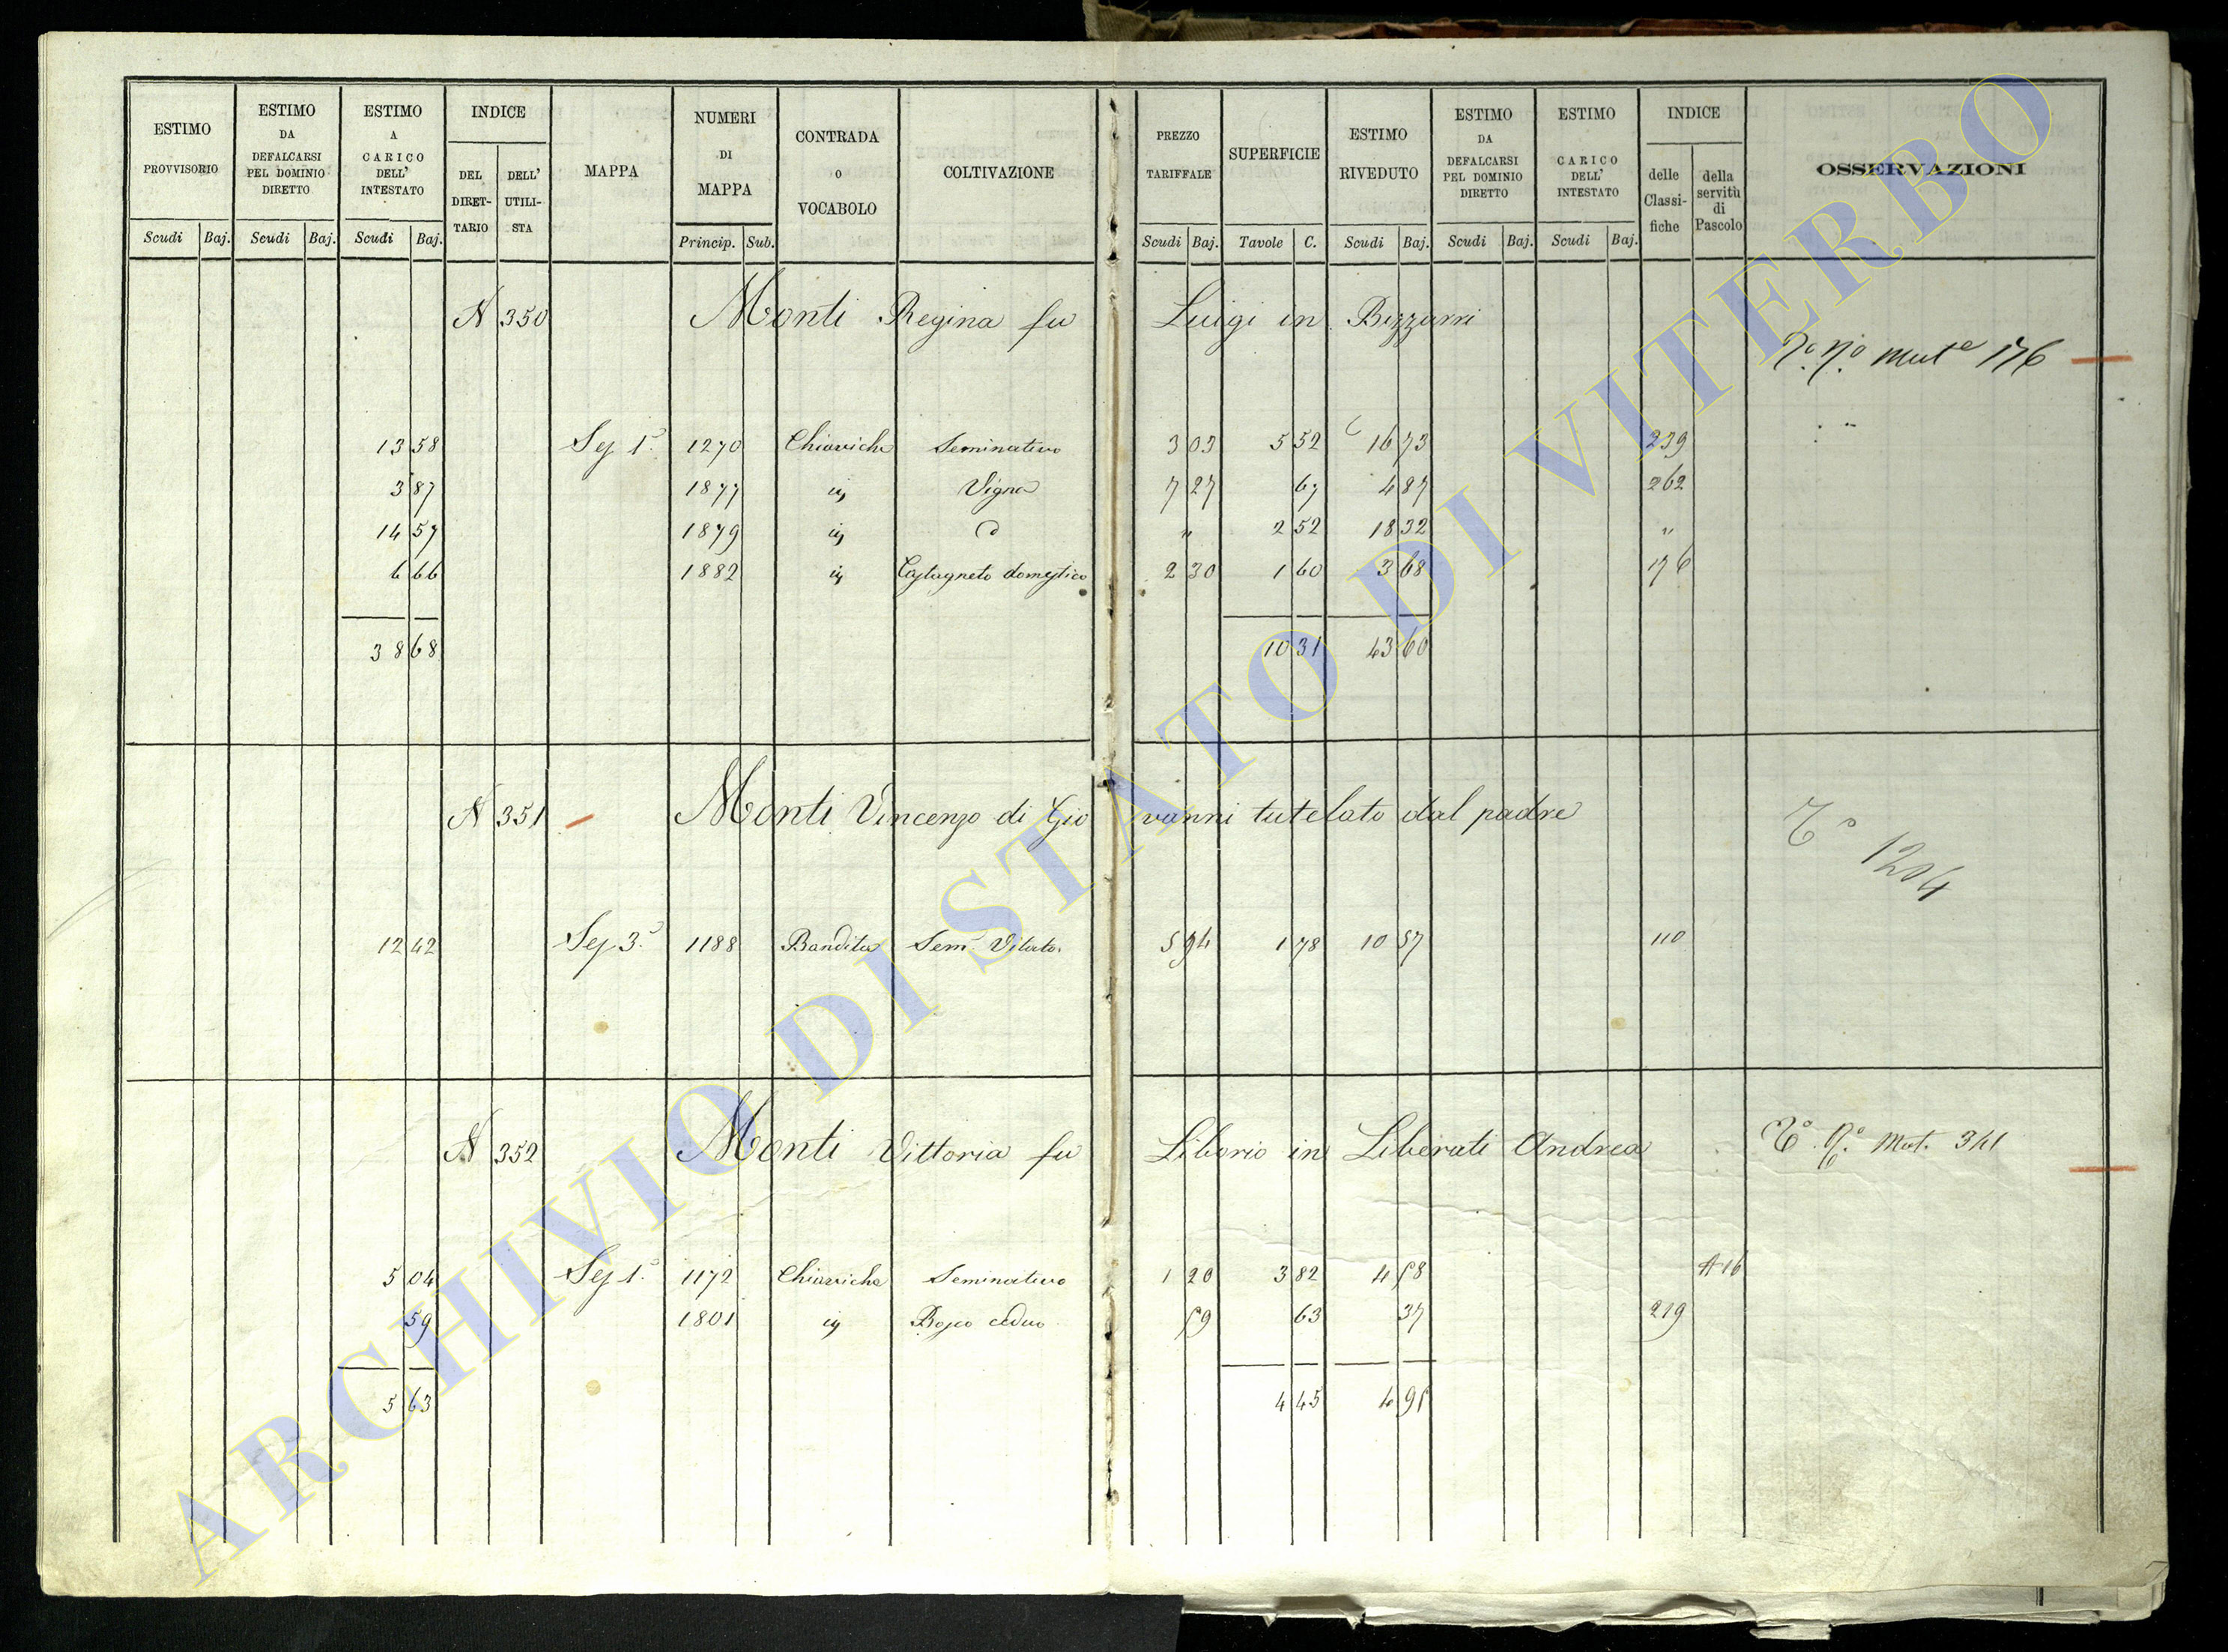 ESTIMO PROVVISORIO
ESTIMO DA DEFALCARSI PEL DOMINIO DIRETTO
ESTIMO A CARICO DELL' INTESTATO
INDICE
DEL DIRETTARIO
DELL' UTILISTA
MAPPA
NUMERI DI MAPPA
CONTRADA O VOCABOLO
COLTIVAZIONE
PREZZO TARIFFALE
SUPERFICIE
ESTIMO RIVEDUTO
ESTIMO DA DEFALCARSI PEL DOMINIO DIRETTO
ESTIMO CARICO DELL' INTESTATO
INDICE
delle Classifiche
della servitù di Pascolo
OSSERVAZIONI
Scudi Baj. Scudi Baj. Scudi Baj. Princip. Sub. Scudi Baj. Tavole C. Scudi Baj. Scudi Baj. Scudi Baj.
N 350 Monti Regina fu Luigi in Bizzarri
176
13 58 Sez 1ª 1270 Chiaviche Seminativo 3 03 5 52 16 73 239
3 87 1877 id Vigna 7 27 67 4 87 262
14 57 1879 id d 〃 2 52 18 32 〃
6 66 1882 id Castagneto domestico 2 30 1 60 3 68 176
38 68 10 31 43 60
N 351 Monti Vincenzo di Giovanni tutelato dal padre
1204
12 42 Sez 3ª 1188 Bandita Sem. Vitato. 5 94 1 78 10 57 110
N 352 Monti Vittoria fu Liborio in Liberati Andrea
Mut. 341
5 04 Sez 1ª 1172 Chiaviche Seminativo 1 20 3 82 4 58 A 16
59 1801 id Bosco ceduo 59 63 37 219
5 63 4 45 4 95
ARCHIVIO DI STATO DI VITERBO